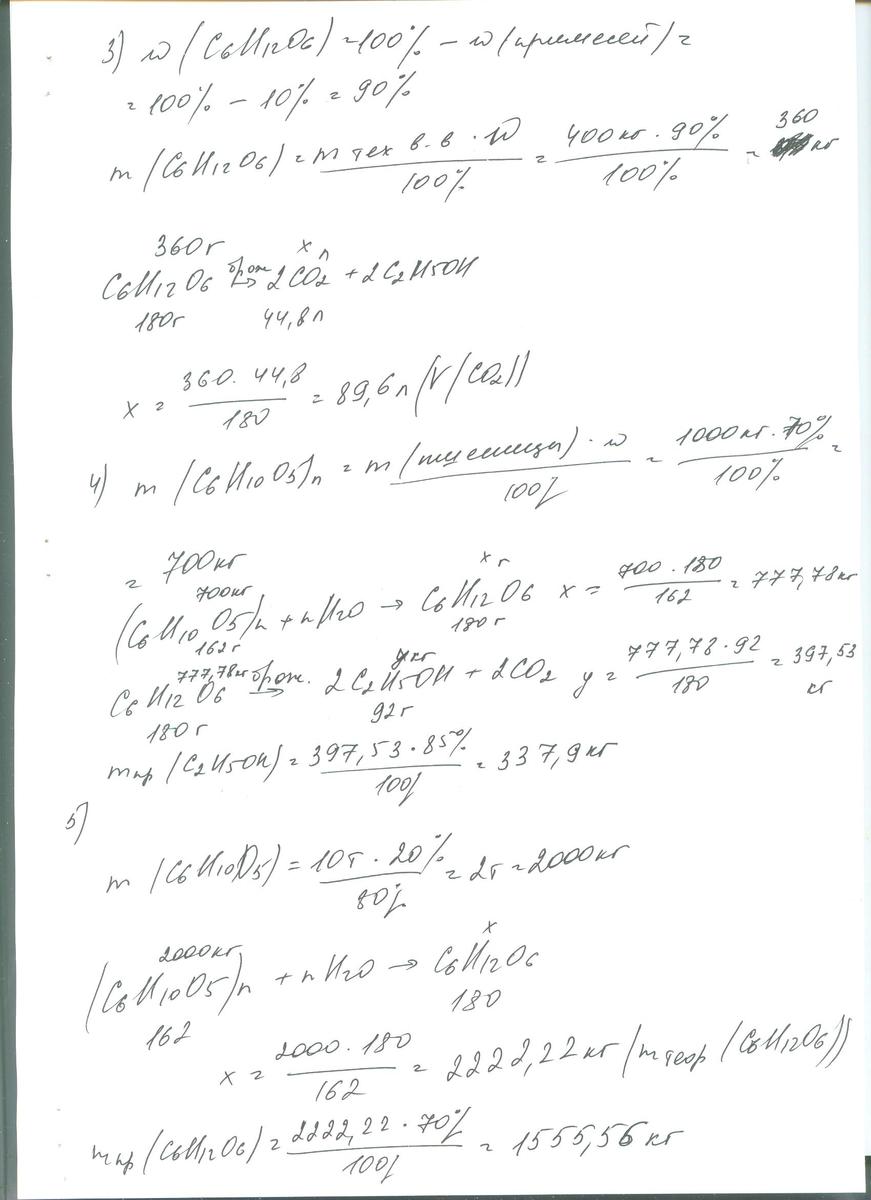 3) w (C6H12O6) = 100% - w (примесей) =
= 100% - 10% = 90%
m (C6H12O6) = m тех в.в · w / 100% = 400кг · 90% / 100% = 360 кг
360г х л
C6H12O6 брож→ 2CO2 + 2C2H5OH
180г 44,8л
x = 360 · 44,8 / 180 = 89,6 л (V(CO2))
4) m (C6H10O5)n = m (пшеницы) · w / 100% = 1000кг · 70% / 100% =
= 700кг
700кг х г
(C6H10O5)n + nH2O → C6H12O6 x = 700 · 180 / 162 = 777,78кг
162г 180г
777,78кг y кг
C6H12O6 брож.→ 2C2H5OH + 2CO2 y = 777,78 · 92 / 180 = 397,53 кг
180г 92г
m пр (C2H5OH) = 397,53 · 85% / 100% = 337,9кг
5)
m (C6H10O5) = 10т · 20% / 80% = 2т = 2000кг
2000кг x
(C6H10O5)n + nH2O → C6H12O6
162 180
x = 2000 · 180 / 162 = 2222,22 кг (m теор (C6H12O6))
m пр (C6H12O6) = 2222,22 · 70% / 100% = 1555,56 кг